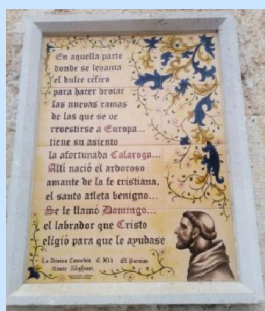 En aquella parte
donde se levanta
el dulce céfiro
para hacer brotar
las nuevas ramas
de las que se ve
revestirse a Europa...
tiene su asiento
la afortunada Calaroga...
Allí nació el ardoroso
amante de la fe cristiana,
el santo atleta benigno...
Se le llamó Domingo...
el labrador que Cristo
eligió para que le ayudase
La Divina Comedia C. XII El Paraíso
Dante Alighieri